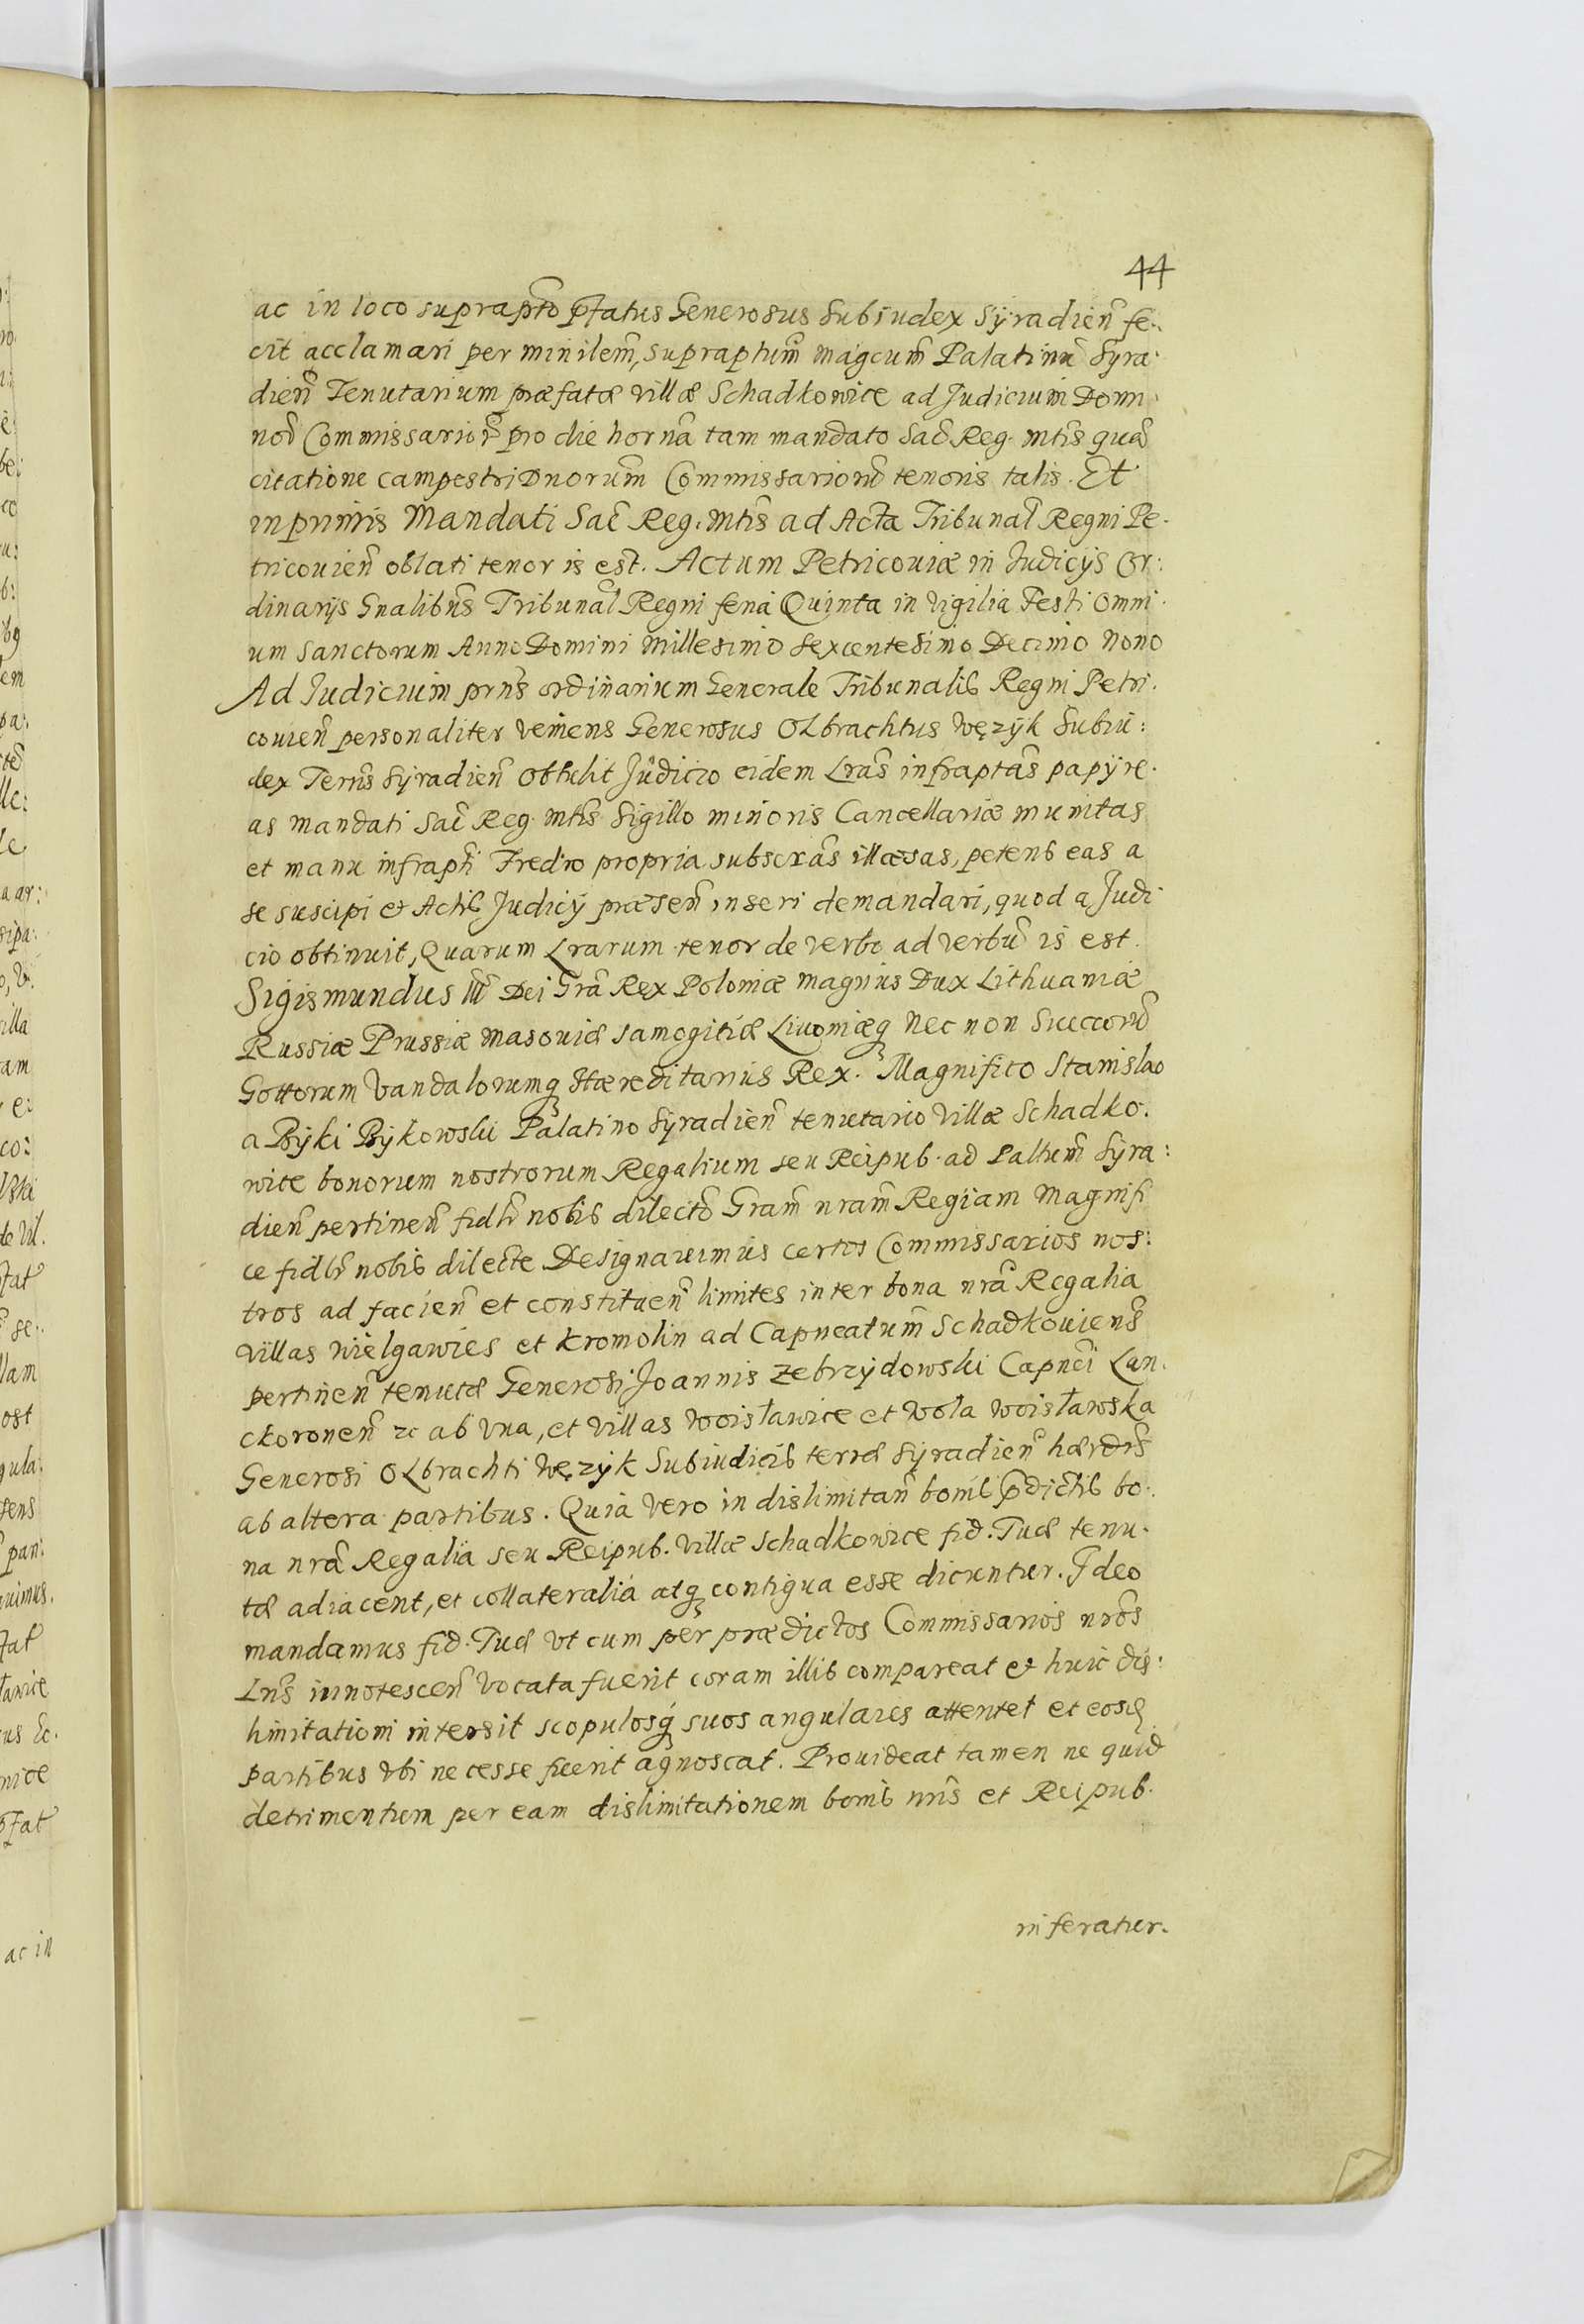 44
ac in loco suprapto pfatus Generosus Subiudex Syradien̄ fe:
cit acclamari per minilem̄, supraptum̄ Magcum̄ Palatinū Syra:
dien̄ Tenutarium præfatæ villæ Schadkowice ad Judicium Domi:
nor̄ Commissarior̄ pro die horna tam mandato Sac̄ Reg. Mtis quā
citatione campestri Dnorum̄ Commissariorū tenoris talis. Et
inprimis Mandati Sac̄ Reg. Mtis ad Acta Tribunal̄ Regni Pe.
tricouien̄ oblati tenor is est. Actum Petricouiæ in Judicijs Or:
dinarijs Gnalibus Tribunal̄ Regni feria Quinta in vigilia Festi Omni.
um Sanctorum Anno Domini Millesimo Sexcentesimo Decimo Nono
Ad Judicium prns ordinarium Generale Tribunalis Regni Petri.
couien̄ personaliter veniens Generosus Olbrachtus Węzÿk Subiu:
dex Terrs Sÿradien̄ obtulit Judicio eidem Lras infraptas papÿre.
as mandati Sac̄ Reg. Mtis Sigillo minoris Cancellariæ munitas
et manu infrapti Fredro propria subscras illæsas, petens eas a
se suscipi et Actis Judicÿ præsen̄ inseri demandari, quod a Judi
cio obtinuit, Quarum Lrarum tenor de verbo ad verbū is est.
Sigismundus III Dei Gra Rex Poloniæ Magnus Dux Lithuaniæ
Russiæ Prussiæ Masouiæ Samogitiæ Liuoniæq̄ Nec non Suecorū
Gottorum Vandalorumq̄ Hæreditarius Rex. Magnifico Stanislao
a Bÿki Bÿkowski Palatino Sÿradien̄ tenutario villæ Schadko.
wice bonorum nostrorum Regalium seu Reipub. ad Pallum̄ Syra:
dien̄ pertinen̄ fidlr nobis dilecto Gram̄ nram̄ Regiam Magnifi
ce fidlr nobis dilecte Designauimus certos Commissarios nos:
tros ad facien̄ et constituen̄ limites inter bona nrā Regalia
villas Wielgawies et Kromolin ad Capneatum̄ Schadkouiens̄
pertinen̄ tenutæ Generosi Joannis Zebrzÿdowski Capnei Lan.
ckoronen̄ &c ab vna, et villas Woisławice et Wola Woisławska
Generosi Olbrachti Węzÿk Subiudicis terræ Sÿradien̄ hærdis
ab altera partibus. Quia vero in dislimitan̄ bonis pdictis bo.
na nrā Regalia seu Reipub. villæ Schadkowice fid. Tuæ tenu.
tæ adiacent, et collateralia atq̄ contigua esse dicuntur. Ideo
mandamus fid. Tuæ vt cum per prædictos Commissarios nros
Lris innotescen̄ vocata fuerit coram illis compareat et huic dis:
limitationi intersit scopulosq̄ suos angulares attentet et eosq̄
partibus vbi necesse fuerit agnoscat. Prouideat tamen ne quid
detrimentum per eam dislimitationem bonis nris et Reipub.
inferatur.